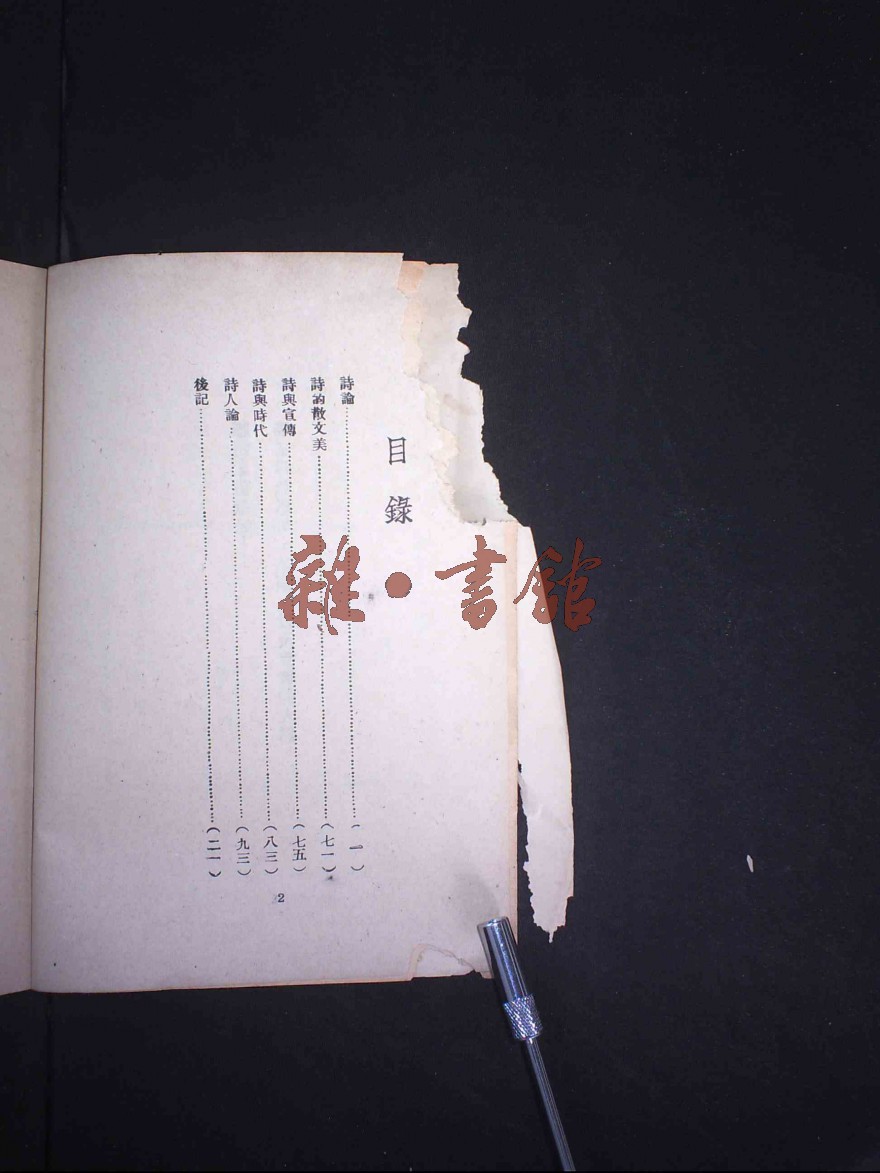 目錄
詩論……(一)
詩的散文美……(七一)
詩與宣傳……(七五)
詩與時代……(八三)
詩人論……(九三)
後記……(二一)
2
雜·書館